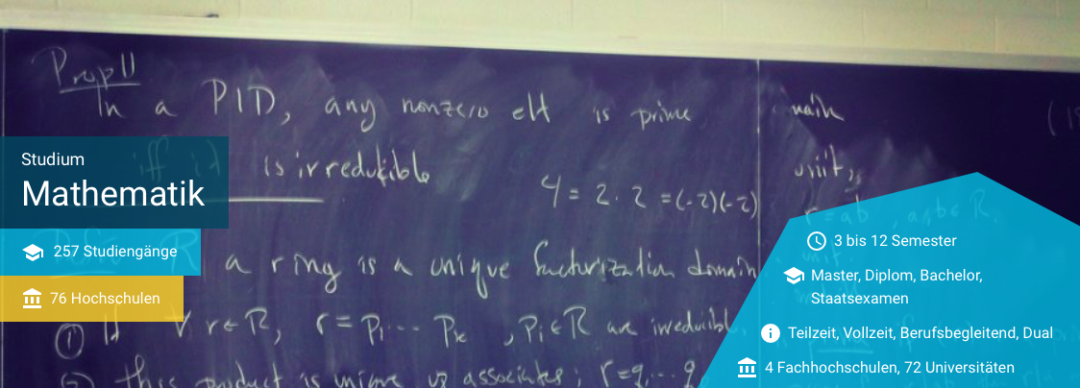 Prop 11
In a PID, any nonzero elt is prime
iff it is irreducible
4 = 2 · 2 = (-2)(-2)
R a ring is a unique factorization domain
① If ∀ r ∈ R, r = p₁ ... pₖ, pᵢ ∈ R are irreducible
② this product is unique up associates; r = q₁ ... q
unit,
r = ab, a,b ∈ R,
unit.
Studium
Mathematik
257 Studiengänge
76 Hochschulen
3 bis 12 Semester
Master, Diplom, Bachelor,
Staatsexamen
Teilzeit, Vollzeit, Berufsbegleitend, Dual
4 Fachhochschulen, 72 Universitäten